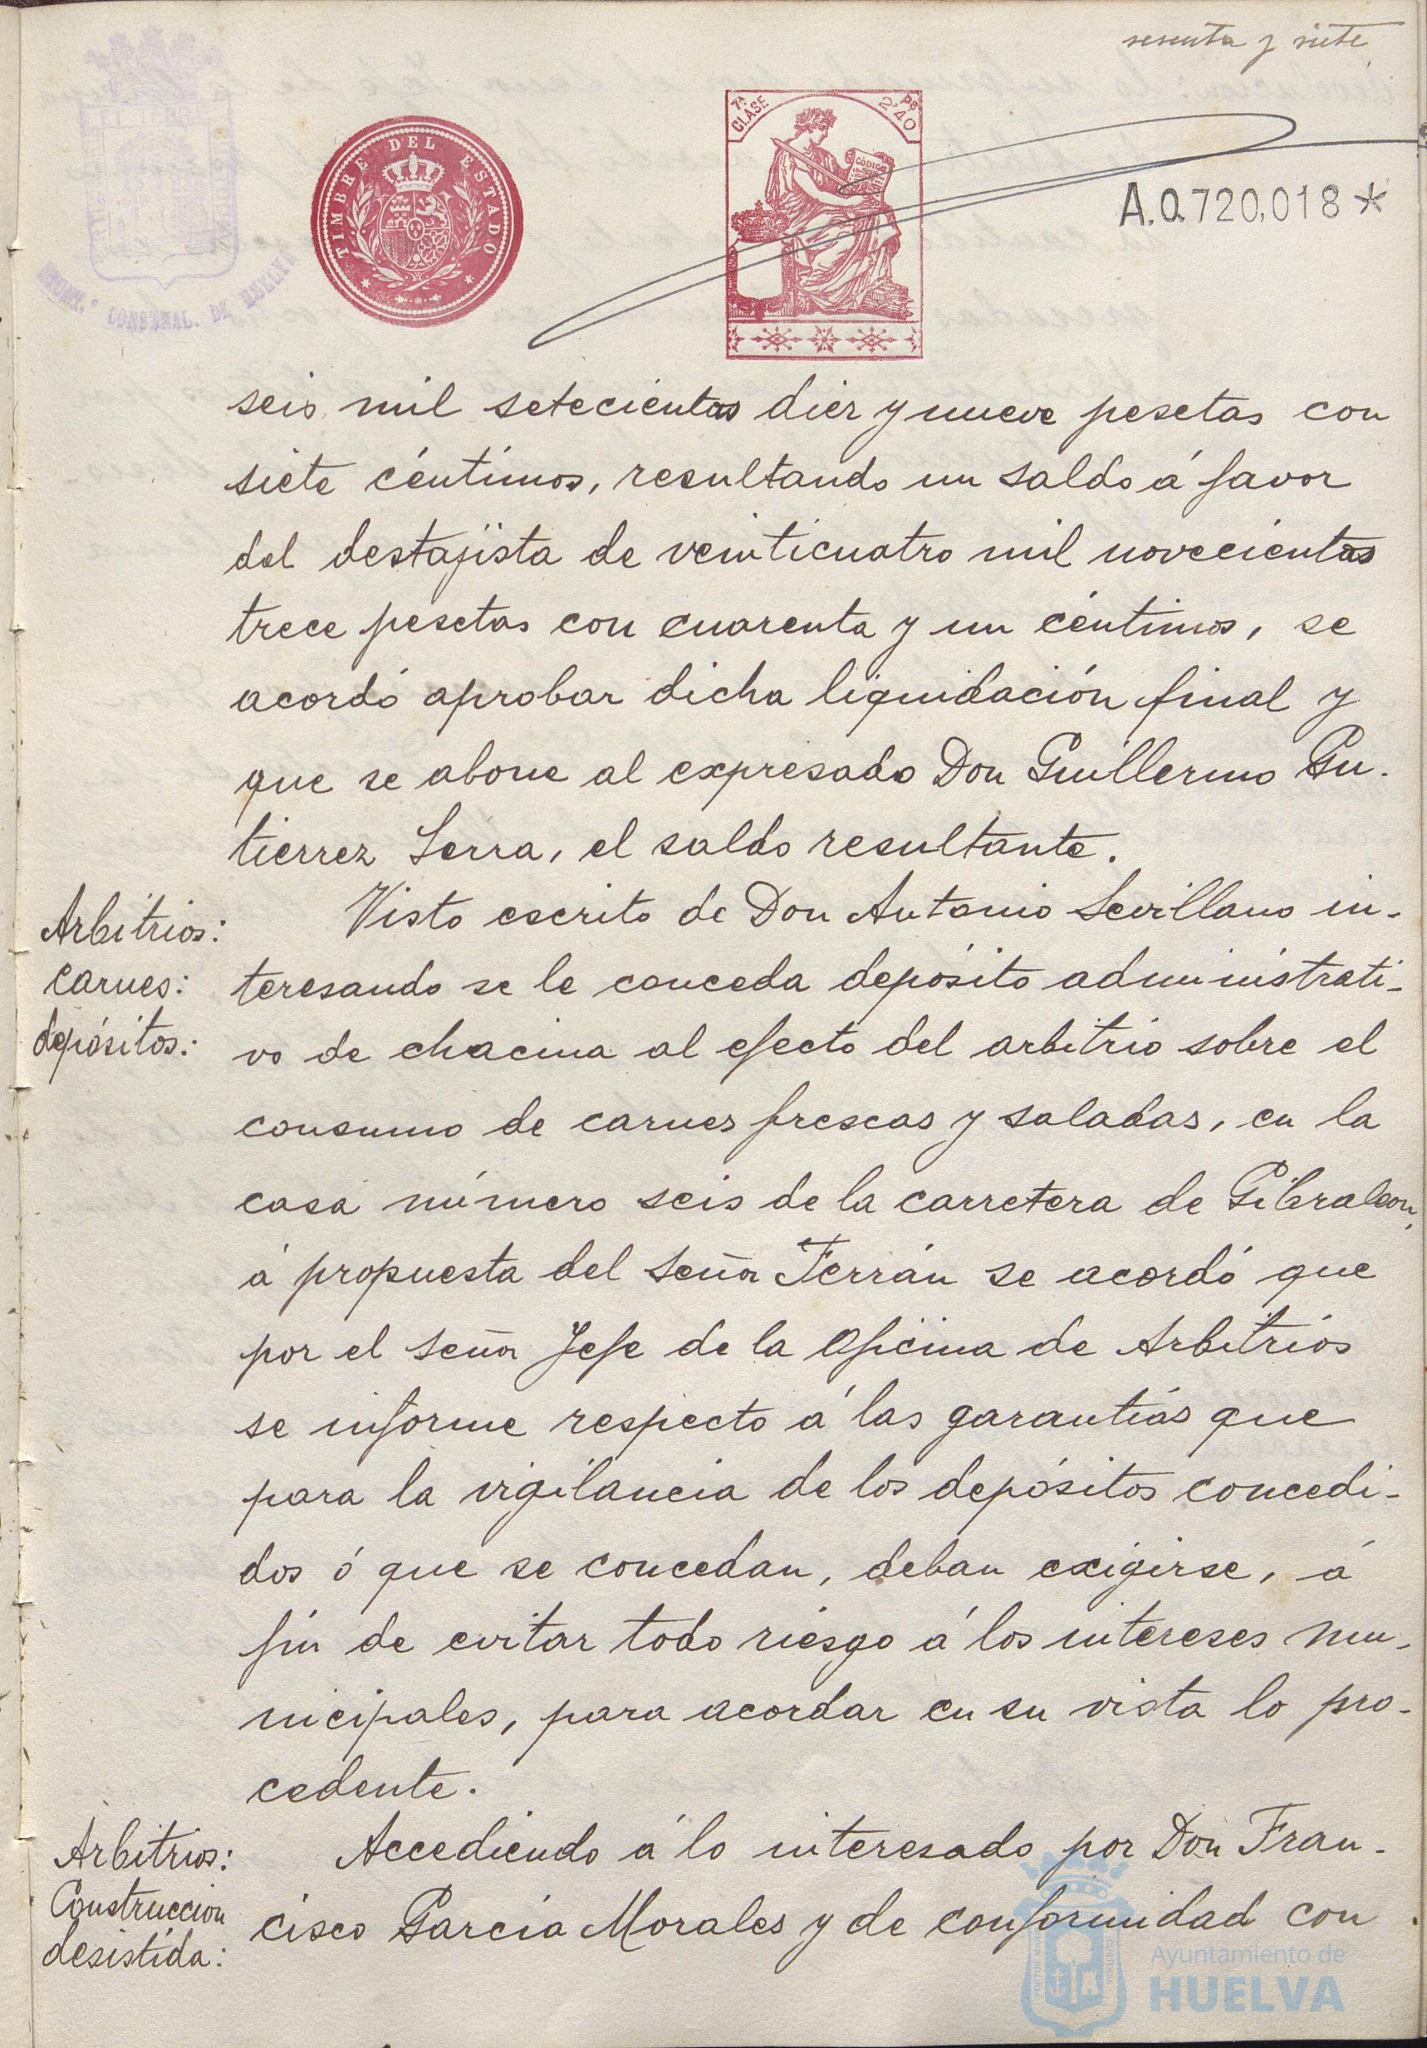 sesenta y siete
TIMBRE DEL ESTADO
7ª CLASE
Pts 2'40
CODIGO
A.0.720,018*
CONSTNAL. DE HUELVA
seis mil setecientas diez y nueve pesetas con
siete céntimos, resultando un saldo á favor
del destajista de veinticuatro mil novecientas
trece pesetas con cuarenta y un céntimos, se
acordó aprobar dicha liquidación final y
que se abone al expresado Don Guillermo Gu-
tierrez Serra, el saldo resultante.
Arbitrios:
carnes:
depósitos:
Visto escrito de Don Antonio Sevillano in-
teresando se le conceda depósito administrati-
vo de chacina al efecto del arbitrio sobre el
consumo de carnes frescas y saladas, en la
casa número seis de la carretera de Gibraleon,
á propuesta del señor Terrán se acordó que
por el señor Jefe de la Oficina de Arbitrios
se informe respecto á las garantías que
para la vigilancia de los depósitos concedi-
dos ó que se concedan, deban exigirse, á
fin de evitar todo riesgo á los intereses mu-
nicipales, para acordar en su vista lo pro-
cedente.
Arbitrios:
Construccion
desistida:
Accediendo á lo interesado por Don Fran-
cisco García Morales y de conformidad con
Ayuntamiento de
HUELVA